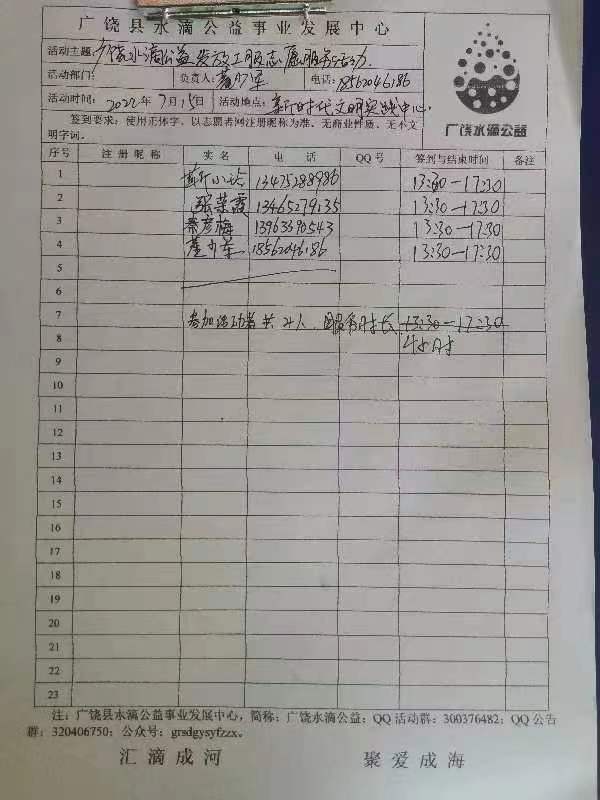 广饶县水滴公益事业发展中心
活动主题: 广饶水滴公益发放工服志愿服务活动
活动部门: 负责人: 电话: 18562046186
活动时间: 2022年7月15日 活动地点: 新时代文明实践中心
签到要求: 使用正体字、以志愿者网注册昵称为准、无商业性质、无不文
明字词。
广饶水滴公益
序号 注册昵称 实名 电话 QQ号 签到与结束时间 备注
1 13475288986 13:30—17:30
2 张荣霞 13465279135 13:30—17:30
3 秦彦梅 13963390543 13:30—17:30
4 18562046186 13:30—17:30
5
6
7 参加活动者共4人 服务时长 13:30—17:30
8 4小时
9
10
11
12
13
14
15
16
17
18
19
20
21
22
23
注: 广饶县水滴公益事业发展中心, 简称: 广饶水滴公益; QQ活动群: 300376482; QQ公告
群: 320406750; 公众号: grsdgysyfzzx。
汇滴成河 聚爱成海